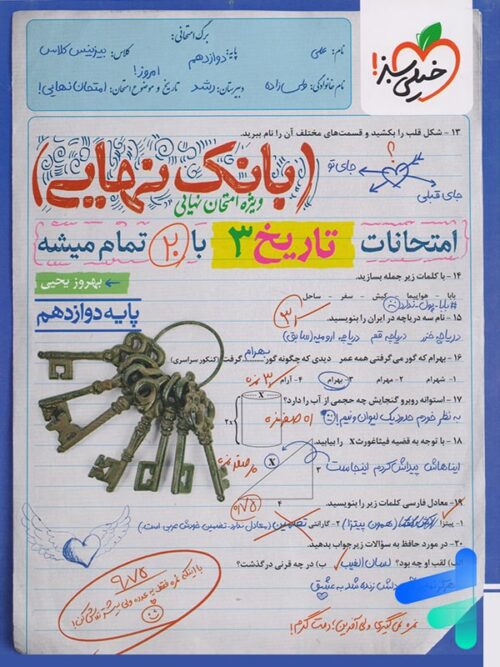 خیلی سبز!
برگ امتحانی:
نام: علی
پایه: دوازدهم
کلاس: بیزینس کلاس
امروز!
نام خانوادگی:
دبیرستان: رشد
تاریخ و موضوع امتحان: امتحان نهایی!
۱۳ - شکل قلب را بکشید و قسمت‌های مختلف آن را نام ببرید.
؟
جای تو
جای قبلی
(بانک نهایی)
ویژه امتحان نهایی
امتحانات تاریخ ۳ با ۲۰ تمام میشه
بهروز یحیی
پایه دوازدهم
۱۴ - با کلمات زیر جمله بسازید.
بابا - هواپیما - کیش - سفر - ساحل
#بابا_پول_نداره
۱۵ - نام سه دریاچه در ایران را بنویسید.
دریاچه خزر دریاچه قم دریاچه ارومیه (سابق)
۱۶ - بهرام که گور می‌گرفتی همه عمر دیدی که چگونه گور بهرام گرفت (کنکور سراسری)
۱- شهرام ۲- مهرام ۳- بهرام ۴- آرام
۱۷ - استوانه روبرو گنجایش چه حجمی از آب را دارد؟
به نظر خودم حدود یک لیوان و نیم!
x
2x
۱۸ - با توجه به قضیه فیثاغورث X را بیابید.
ایناهاش پیداش کردم اینجاست
X
۳
۴
۱۹- معادل فارسی کلمات زیر را بنویسید.
۱- پیتزا (همون پیتزا) ۲- گارانتی تضمین (معادل ندارد تضمین خودش عربی است.)
۲۰- در مورد حافظ به سؤالات زیر جواب بدهید.
الف) لقب او چه بود؟ لسان الغیب ب) در چه قرنی درگذشت؟
هرگز نمیرد آنکه دلش زنده شد به عشق
۹/۷۵